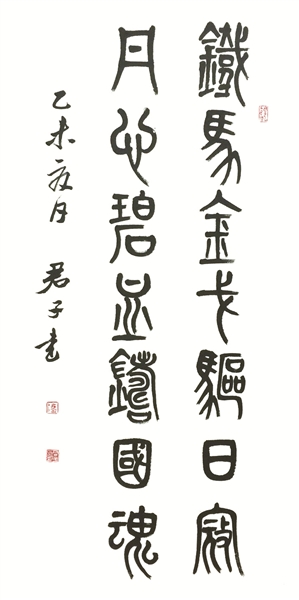 鐵馬金戈驅日寇
丹心碧血鑄國魂
乙未夏月 君子書